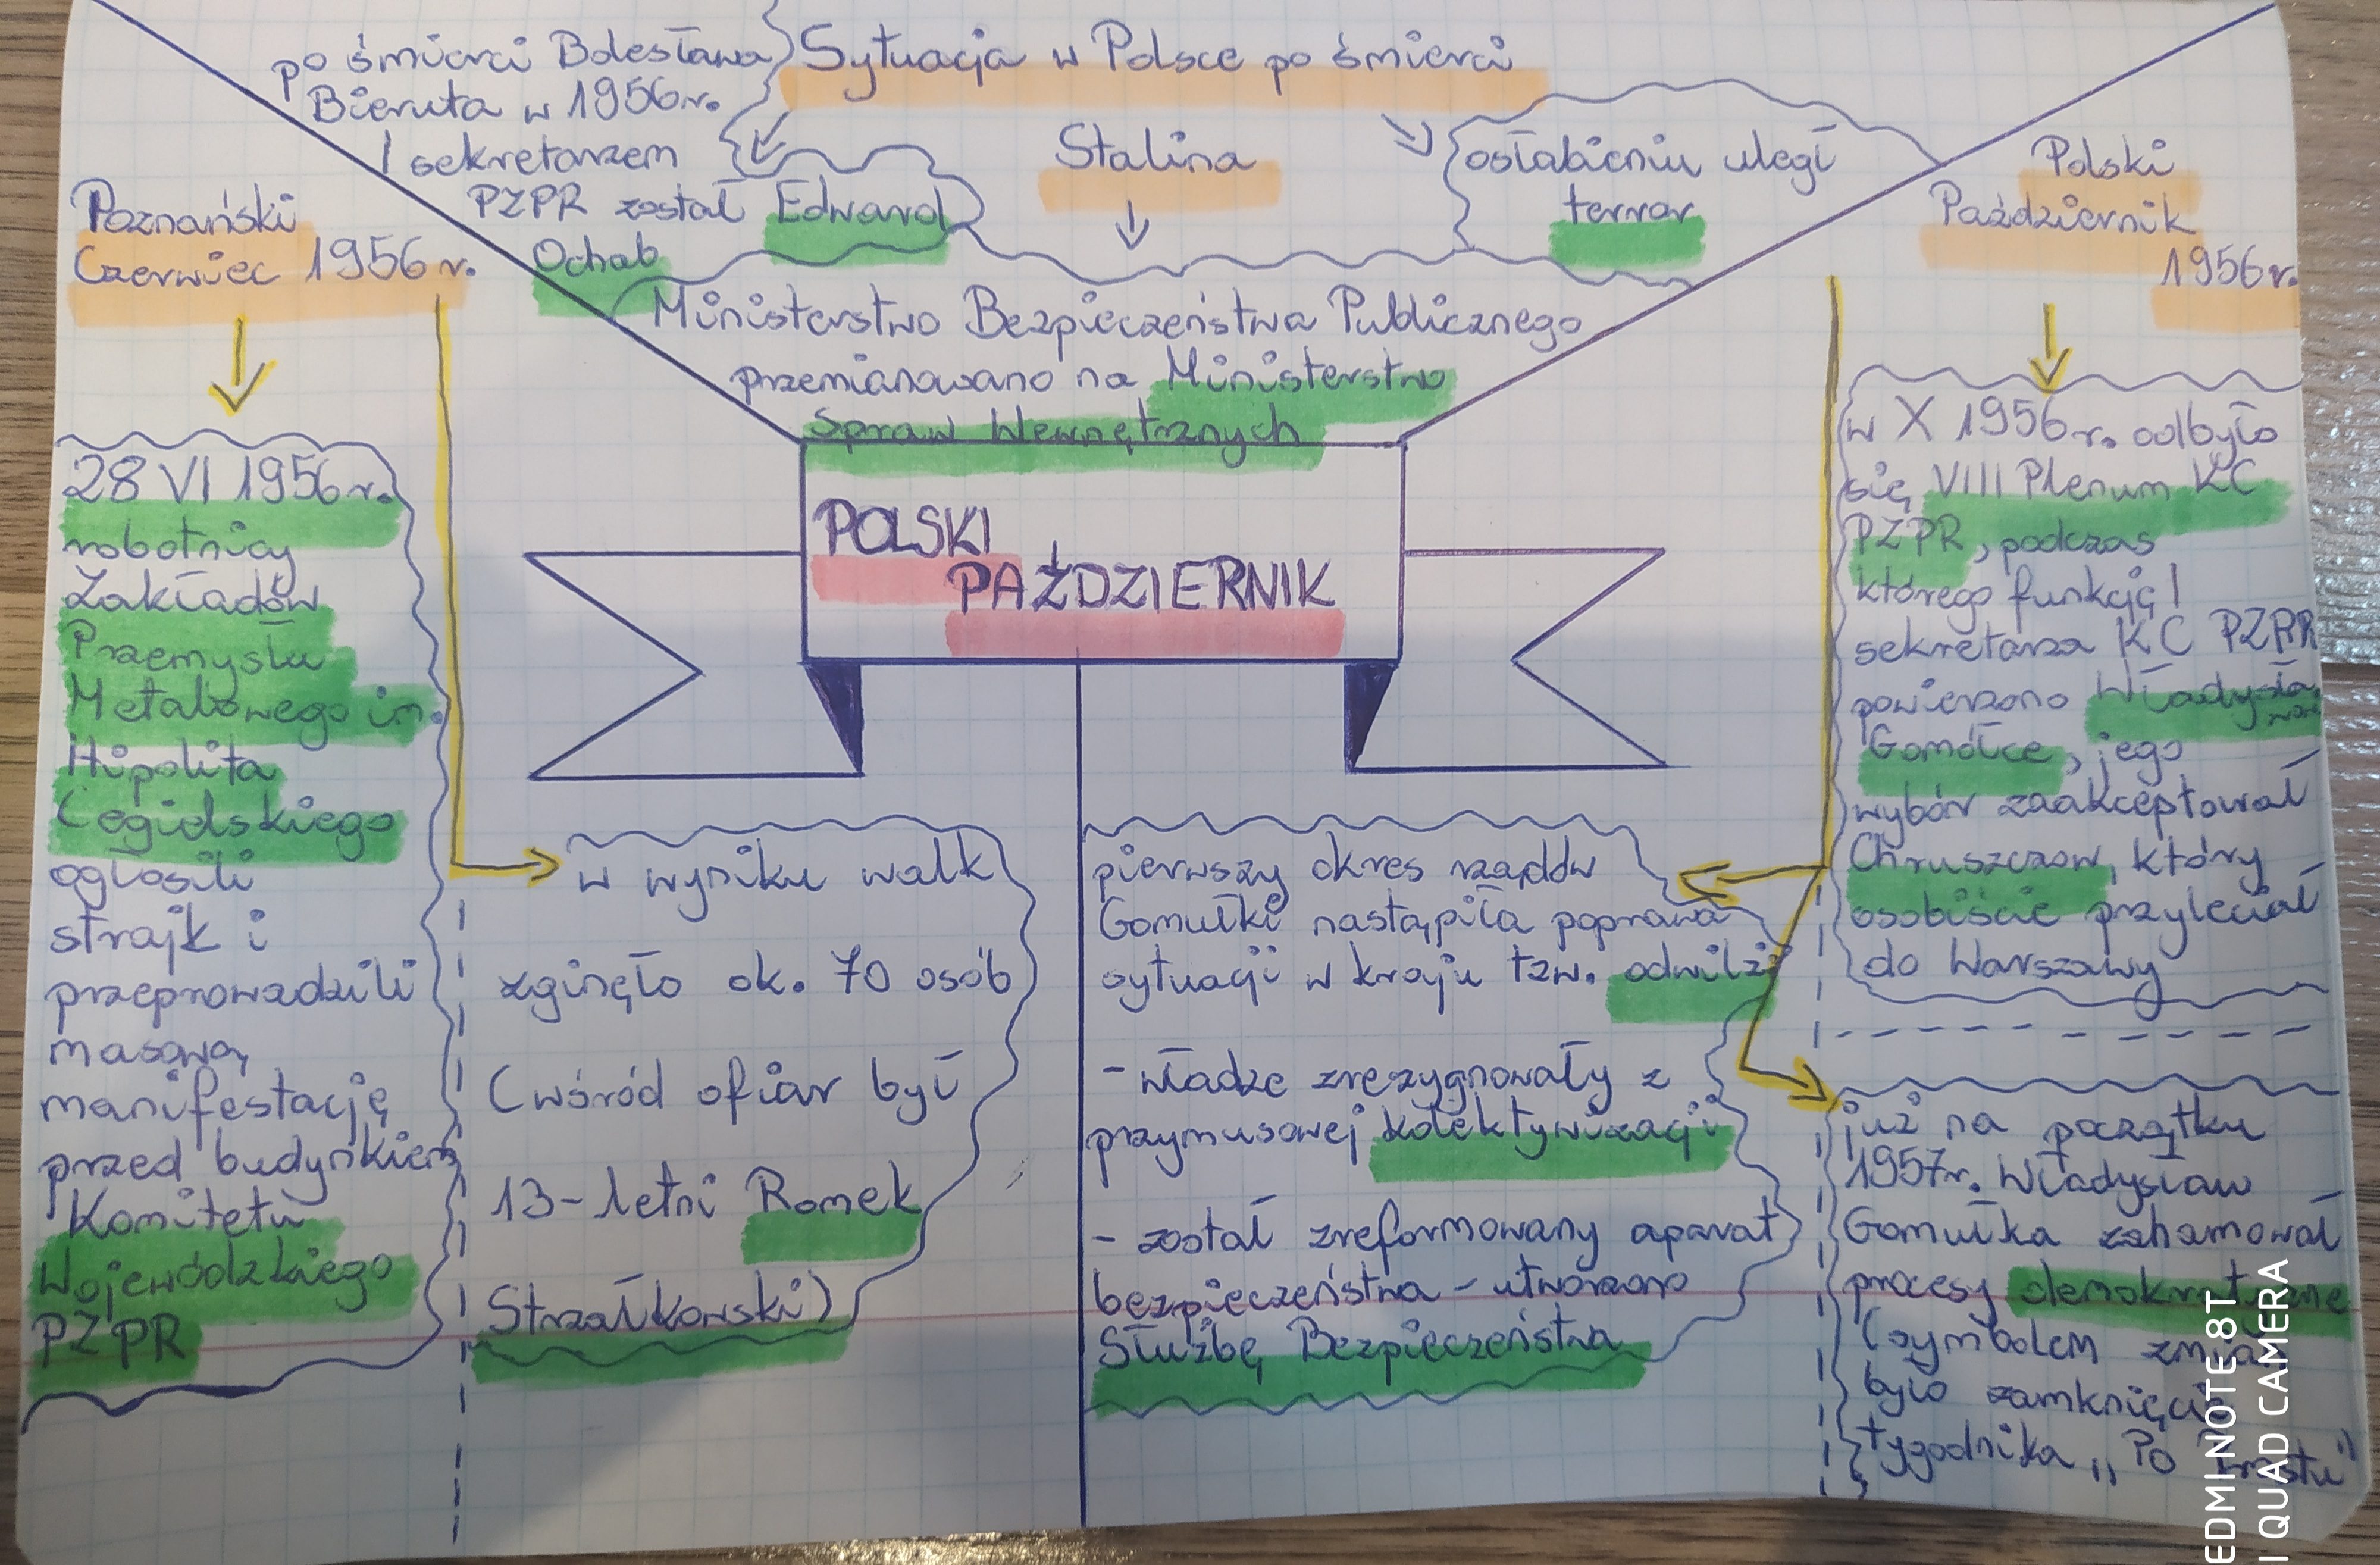 Sytuacja w Polsce po śmierci
Stalina
po śmierci Bolesława
Bieruta w 1956r.
I sekretarzem
PZPR został Edward
Ochab
Ministerstwo Bezpieczeństwa Publicznego
przemianowano na Ministerstwo
Spraw Wewnętrznych
osłabieniu uległ
terror
POLSKI
PAŹDZIERNIK
Poznański
Czerwiec 1956 r.
28 VI 1956 r.
robotnicy
Zakładów
Przemysłu
Metalowego im.
Hipolita
Cegielskiego
ogłosili
strajk i
przeprowadzili
masową
manifestację
przed budynkiem
Komitetu
Wojewódzkiego
PZPR
w wyniku walk
zginęło ok. 70 osób
(wśród ofiar był
13-letni Romek
Strzałkowski)
Polski
Październik
1956r.
w X 1956r. odbyło
się VIII Plenum KC
PZPR, podczas
którego funkcję I
sekretarza KC PZPR
powierzono Władysła
wowi
Gomółce, jego
wybór zaakceptował
Chruszczow, który
osobiście przyleciał
do Warszawy
pierwszy okres rządów
Gomułki nastąpiła poprawa
sytuacji w kraju tzw. odwilż
- władze zrezygnowały z
przymusowej kolektywizacji
- został zreformowany aparat
bezpieczeństwa - utworzono
Służbę Bezpieczeństwa
już na początku
1957r. Władysław
Gomułka zahamował
procesy demokratyczne
(symbolem zmian
było zamknięcie
tygodnika „Po Prostu"
EDMI NOTE 8T
I QUAD CAMERA